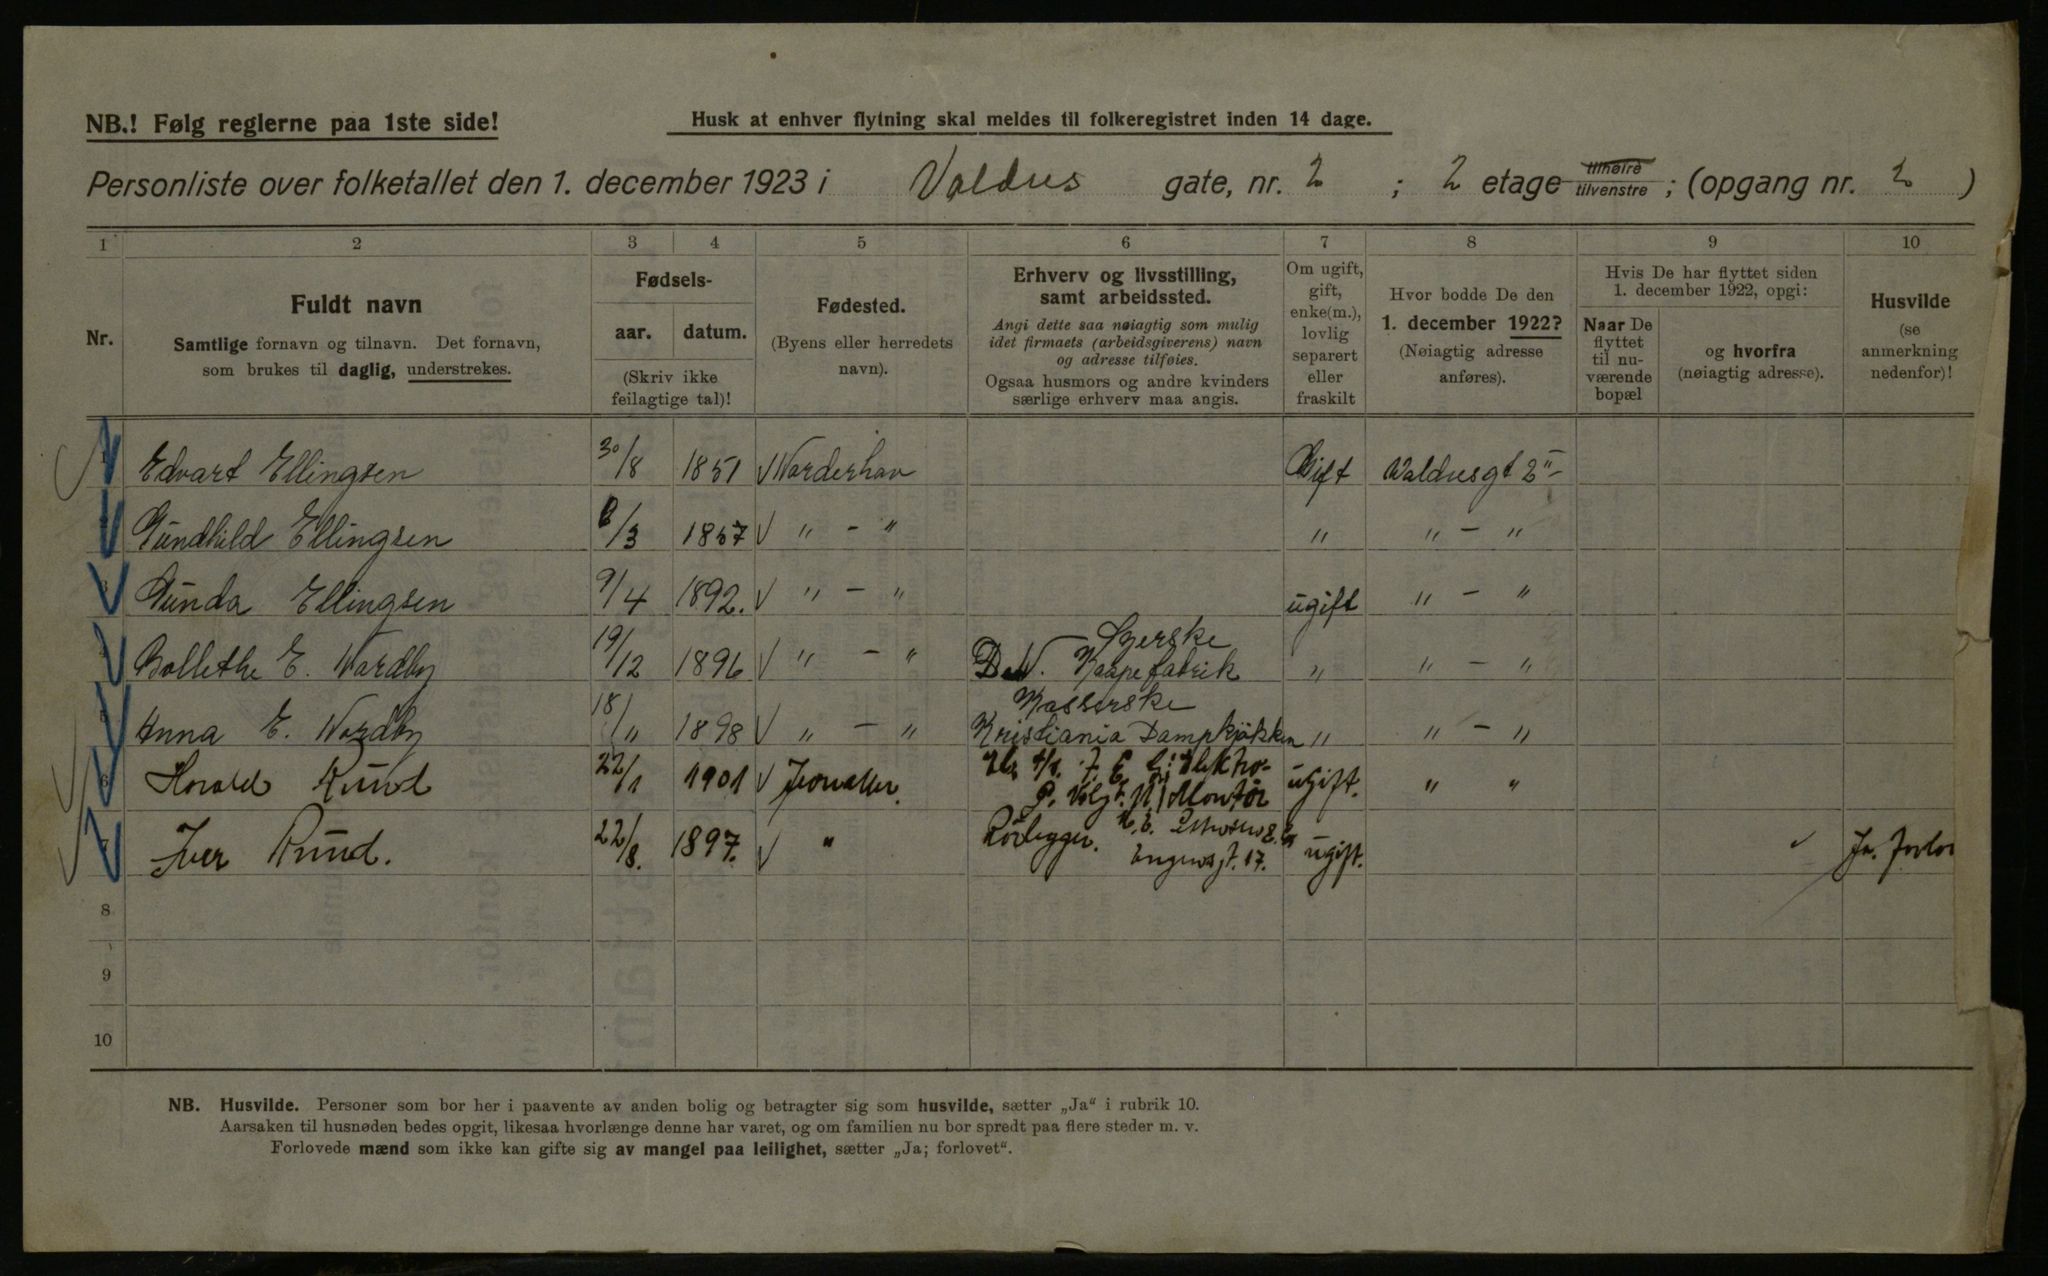 NB.! Følg reglerne paa 1ste side!
Husk at enhver flytning skal meldes til folkeregistret inden 14 dage.
Personliste over folketallet den 1. december 1923 i Valdres gate, nr. 2 ; 2 etage tilhøire tilvenstre ; (opgang nr. 2 )
1 2 3 4 5 6 7 8 9 10
Nr.
Fuldt navn
Samtlige fornavn og tilnavn. Det fornavn,
som brukes til daglig, understrekes.
Fødsels-
aar. datum.
(Skriv ikke
feilagtige tal)!
Fødested.
(Byens eller herredets
navn).
Erhverv og livsstilling,
samt arbeidssted.
Angi dette saa nøiagtig som mulig
idet firmaets (arbeidsgiverens) navn
og adresse tilføies.
Ogsaa husmors og andre kvinders
særlige erhverv maa angis.
Om ugift,
gift,
enke(m.),
lovlig
separert
eller
fraskilt
Hvor bodde De den
1. december 1922?
(Nøiagtig adresse
anføres).
Hvis De har flyttet siden
1. december 1922, opgi:
Naar De
flyttet
til nu-
værende
bopæl
og hvorfra
(nøiagtig adresse).
Husvilde
(se
anmerkning
nedenfor)!
Edvart Ellingsen 30/8 1851 Norderhov Gift Valdresgt 2 II
Gundhild Ellingsen 6/3 1857 " - " " " - "
Gunda Ellingsen 9/4 1892. " - " ugift " - "
Syerske
Bollethe E. Nordby 19/12 1896 " - " D.N. Kaapefabrik " " - "
Kasserske
Anna E. Nordby 18/" 1898 " - " Kristiania Dampkjøkken " " - "
6 Harald Ruud 22/1 1901 Jevnaker. Elektro- ugift. " "
Montør
7 Iver Ruud. 22/8. 1897. " Rørlegger. ugift. Ja. forlo
17.
8
9
10
NB. Husvilde. Personer som bor her i paavente av anden bolig og betragter sig som husvilde, sætter „Ja“ i rubrik 10.
Aarsaken til husnøden bedes opgit, likesaa hvorlænge denne har varet, og om familien nu bor spredt paa flere steder m. v.
Forlovede mænd som ikke kan gifte sig av mangel paa leilighet, sætter „Ja; forlovet“.